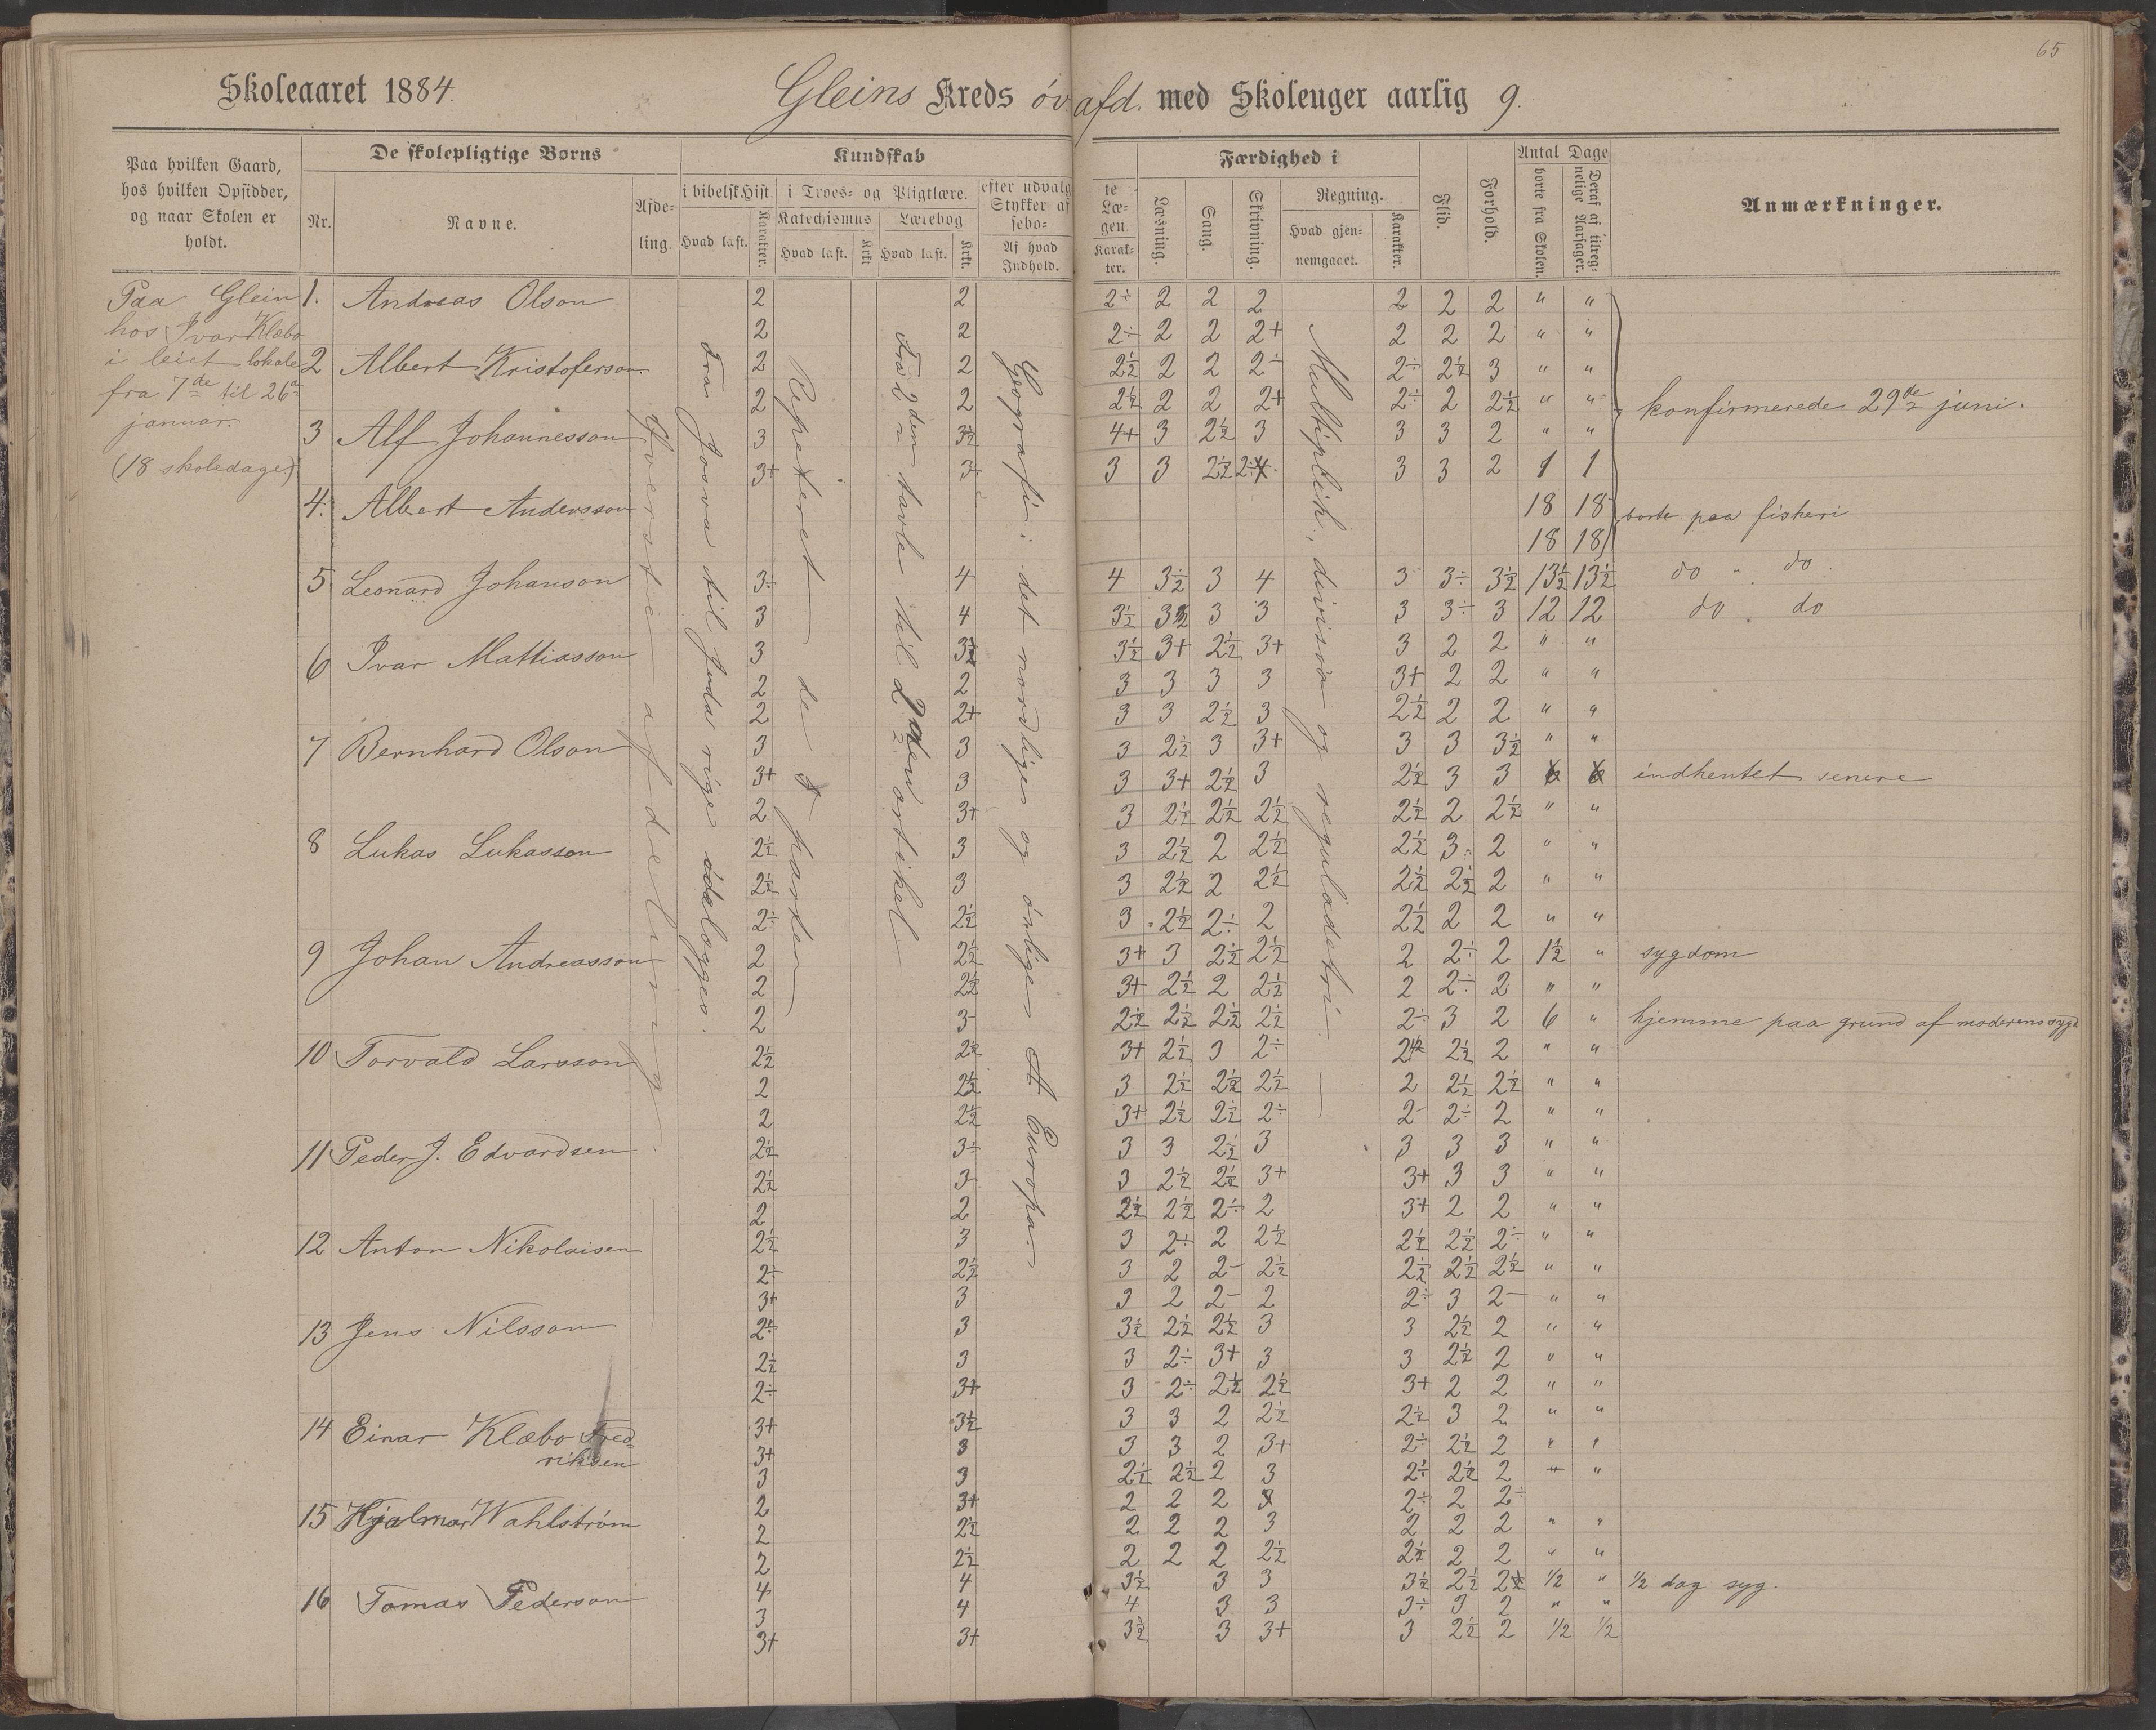 65
Skoleaaret 1884.
Gleins Kreds öv. afd. med Skoleuger aarlig 9.
Paa hvilken Gaard,
hos hvilken Opsidder,
og naar Skolen er
holdt.
De skolepligtige Børns
Nr.
Navne.
Afde-
ling.
Kundskab
i bibelsk Hist.
Hvad læst.
Karakter.
i Troes- og Pligtlære.
Katechismus
Hvad læst.
Krkt.
Lærebog
Hvad læst.
Krkt.
efter udvalg
Stykker af
sebo-
Af hvad
Indhold.
te
Læ-
gen.
Karak-
ter.
Færdighed i
Læsning.
Sang.
Skrivning.
Regning.
Hvad gjen-
nemgaaet.
Karakter.
Flid.
Forhold.
Antal Dage
borte fra Skolen.
Deraf af tilreg-
nelige Aarsager.
Anmærkninger.
Paa Glein
hos Ivar Klæbo
i leiet lokale
fra 7de til 26de
januar.
(18 skoledage)
Øverste afdeling.
Fra Josva til Juda rige ødelægges.
Repeteret de 3 parter
Fra 2den tavle til 2den artikel
Geografi: det nordlige og östlige Europa
Multiplik., division og reguladetri
1. Andreas Olson 2 2 2÷ 2 2 2 2 2 2 " "
2 2 2÷ 2 2 2+ 2 2 2 " "
2 Albert Kristoferson 2 2 2½ 2 2 2÷ 2÷ 2½ 3 " "
2 2 2½ 2 2 2+ 2÷ 2 2½ " " konfirmerede 29de juni.
3 Alf Johannesson 3 3½ 4+ 3 2½ 3 3 3 2 " "
3+ 3 3 3 2½ 2÷ 3 3 2 1 1
4. Albert Andersson 18 18 borte paa fiskeri
18 18
5 Leonard Johanson 3÷ 4 4 3½ 3 4 3 3÷ 3½ 13½ 13½ do " do.
3 4 3½ 3½ 3 3 3 3÷ 3 12 12 do . do
6 Ivar Mattiasson 3 3½ 3½ 3+ 2½ 3+ 3 2 2 " "
2 2 3 3 3 3 3+ 2 2 " "
2 2+ 3 3 2½ 3 2½ 2 2 " "
7 Bernhard Olson 3 3 3 2½ 3 3+ 3 3 3½ " "
3+ 3 3 3+ 2½ 3 2½ 3 3 6 6 indhentet senere
2 3+ 3 2½ 2½ 2½ 2½ 2 2½ " "
8 Lukas Lukasson 2½ 3 3 2½ 2 2½ 2½ 3 2 " "
2½ 3 3 2½ 2 2½ 2½ 2½ 2 " "
2÷ 2½ 3 2½ 2÷ 2 2½ 2 2 " "
9 Johan Andreasson 2 2½ 3+ 3 2½ 2½ 2 2÷ 2 1½ " sygdom
2 2½ 3+ 2½ 2 2½ 2 2÷ 2 " "
2 3 2½ 2½ 2½ 2½ 2÷ 3 2 6 " hjemme paa grund af moderens syg
10 Torvald Larsson 2½ 2½ 3+ 2½ 3 2÷ 2½ 2½ 2 " "
2 2½ 3 2½ 2½ 2½ 2 2½ 2½ " "
2 2½ 3+ 2½ 2½ 2÷ 2 2÷ 2 " "
11 Peder J. Edvardsen 2½ 3÷ 3 3 2½ 3 3 3 3 " "
2½ 3 3 2½ 2½ 3+ 3+ 3 3 " "
2 2 2½ 2½ 2÷ 2 3+ 2 2 " "
12 Anton Nikolaisen 2½ 3 3 2÷ 2 2½ 2½ 2½ 2÷ " "
2÷ 2½ 3 2 2- 2½ 2½ 2½ 2½ " "
3+ 3 3 2 2- 2 2÷ 3 2- " "
13 Jens Nilsson 2÷ 3 3½ 2½ 2½ 3 3 2½ 2 " "
2½ 3 3 2÷ 3+ 3 3 2½ 2 " "
2÷ 3+ 3 2÷ 2½ 2½ 3+ 2 2 " "
14 Einar Klæbo Fred-
riksen
3+ 3½ 3 3 2 2½ 2½ 3 2 " "
3+ 3 3 3 2 3+ 2÷ 2½ 2 " "
3 3 2½ 2½ 2 3 2½ 2½ 2 " "
15 Hjalmar Wahlström 2 3+ 2 2 2 3 2÷ 2 2÷
2 2½ 2 2 2 3 2 2 2 " "
2 2½ 2 2 2 2½ 2½ 2 2 " "
16 Tomas Pederson 4 4 3½ 3 3 3½ 2½ 2½ ½ " ½ dag syg.
3 4 4 3 3 3÷ 3 2 " "
3+ 3+ 3½ 3 3+ 3 2½ 2 ½ ½